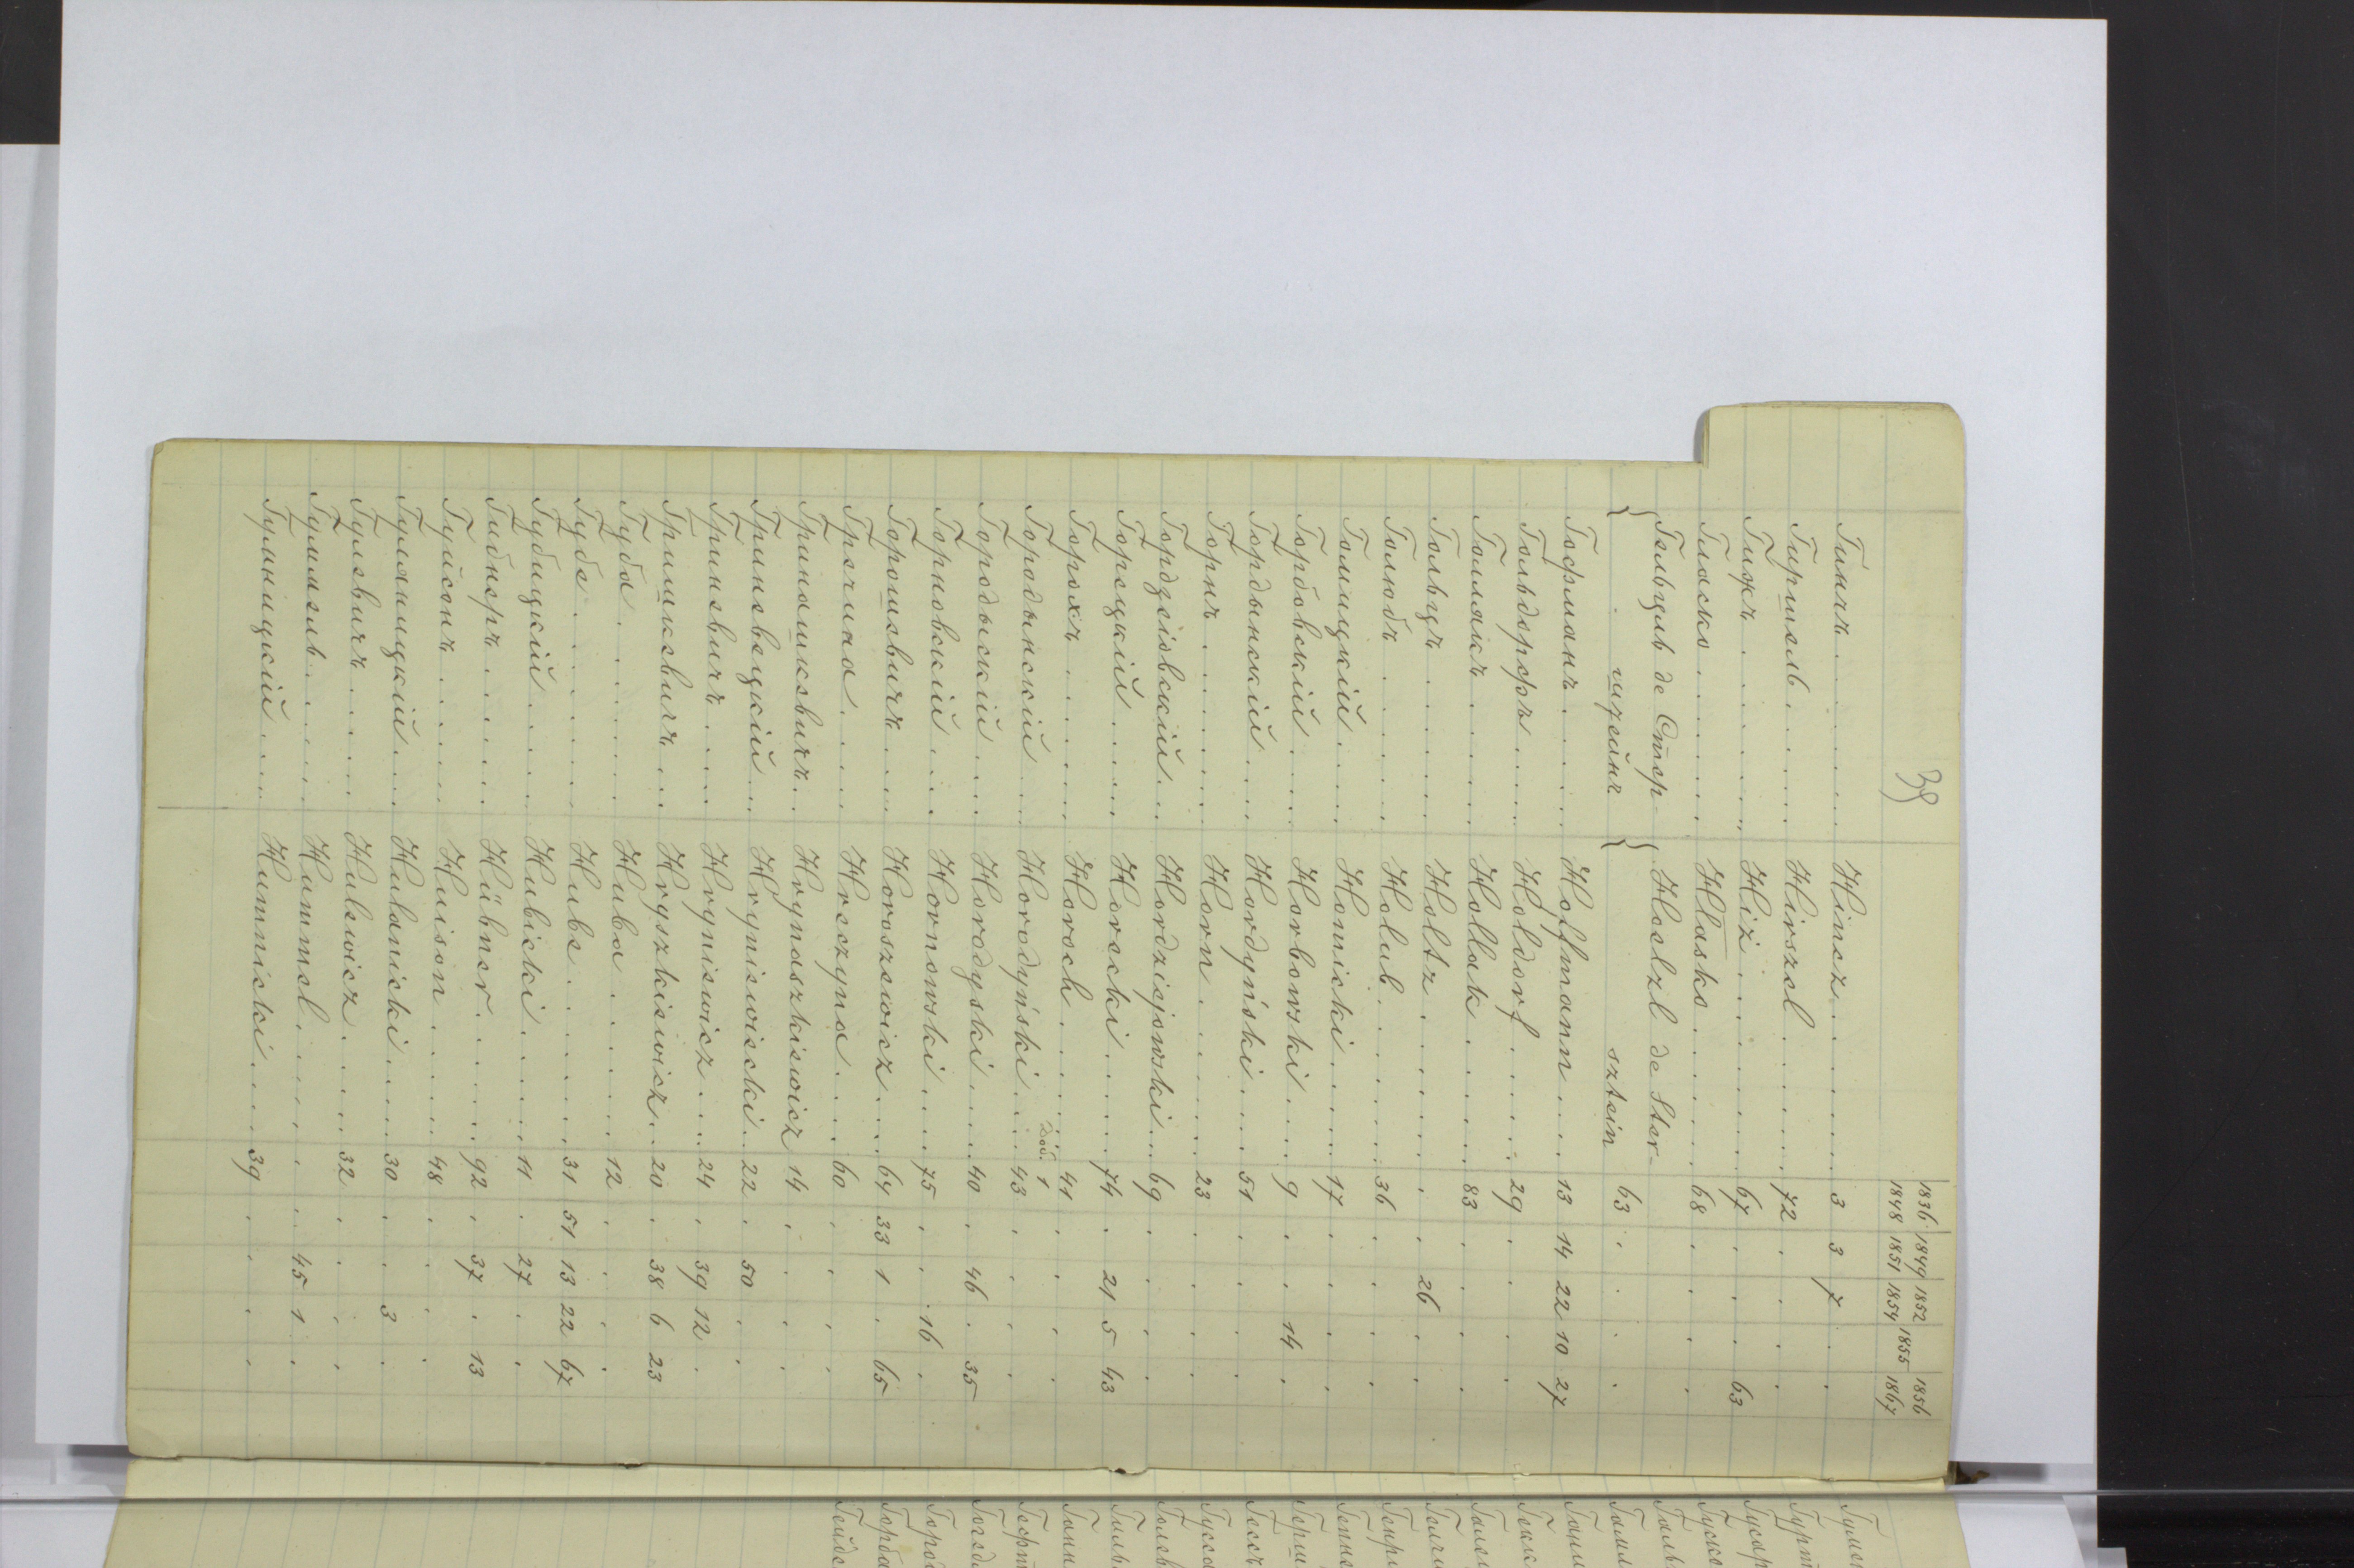 39
1836 1849 1852 1856
1848 1851 1854 1855 1867
Гинч . . . . . . Hincz . . . . . . 3 3 7 . .
Гиршель . . . . . Hirszel . . . . . 72 . . . .
Гиж . . . . . . Hiż . . . . . . 67 . . . 63
Гласко . . . . . Hłasko . . . . . 68 . . . .
{ Гельцль де Стер- } Hoelzl de Ster-
штейнъ sztein 63 . . . .
Гофманъ . . . . Hoffmann . . . 13 14 22 10 27
Гольдорфъ . . . . Holdorf . . . . 29 . . . .
Голлакъ . . . . . Hollak . . . . . 83 . . . .
Гольцъ . . . . . Holtz . . . . . . . 26 . .
Голюбъ . . . . . Holub . . . . . 36 . . . .
Гомицкій . . . . Homicki . . . . 17 . . . .
Горбовскій . . . . Horbowski . . . 9 . . 14 .
Гордынскій . . . Hordyński . . . 51 . . . .
Горнъ . . . . . Horn . . . . . 23 . . . .
Гордзіевскій . . Hordziejewski . . 69 . . . .
Горецкій . . . . Horecki . . . . 74 . 21 5 43
Горохъ . . . . . Horoch . . . . . 41 . . . .
Городынскій . . Horodyński . . . dod. 1 43 . . . .
Городыскій . . . Horodyski . . . 40 . 46 . 35
Горновскій . . . Hornowski . . . 75 . . 16 .
Горошевичъ . . . Horoszewicz . . . 64 33 1 . 65
Гречина . . . . Hreczyna . . . 60 . . . .
Гринашкевичъ . . Hrynaszkiewicz 14 . . . .
Гриневецкій . . Hryniewiecki . . 22 . 50 . .
Гриневичъ . . . Hryniewicz . . . 24 . 39 12 .
Гришкевичъ . . . Hryszkiewicz . . 20 . 38 6 23
Губа . . . . . Huba . . . . . 12 . . . .
Губе . . . . . Hube . . . . . 31 51 13 22 67
Губицкій . . . . Hubicki . . . . 11 . 27 . .
Гибнеръ . . . . Hübner . . . . 92 . 37 . 13
Гуисонъ . . . . Huison . . . . 48 . . . .
Гуляницкій . . . Hulanicki . . . 30 . . 3 .
Гулевичъ . . . . Hulewicz . . . 32 . . . .
Гуммель . . . . Hummel . . . . . . 45 1 .
Гумницкій . . . Humnicki . . . 39 . . . .